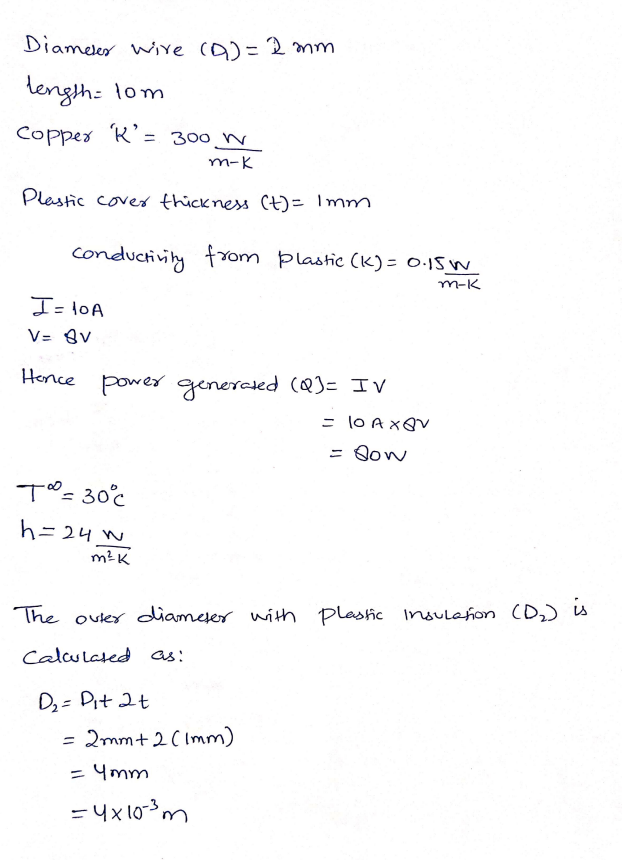 Diameter wire (D₁) = 2 mm
length = 10m
Copper 'K' = 300 W/m-K
Plastic cover thickness (t) = 1mm
conductivity from plastic (K) = 0.15 W/m-K
I = 10A
V = 8V
Hence power generated (Q) = IV
= 10 A x 8V
= 80W
T∞ = 30°C
h = 24 W/m²K
The outer diameter with plastic insulation (D₂) is
Calculated as:
D₂ = D₁ + 2t
= 2mm + 2(1mm)
= 4mm
= 4 x 10⁻³ m